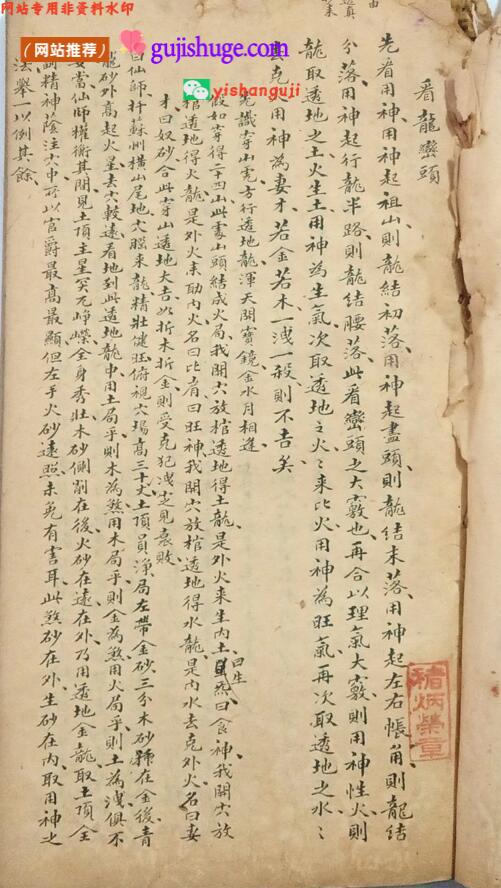 网站专用非资料水印
（网站推荐）
gujishuge.com
yishanguji
看龍巒頭
先看用神用神起祖山則龍結初落用神起盡頭則龍結末落用神起左右帳角則龍結
分落用神起行龍半路則龍結腰落此看巒頭之大竅也再合以理氣大竅則用神性火則
龍取透地之土火生土用神為生氣次取透地之火火來比火用神為旺氣再次取透地之水水
去克用神為妻才若金若木一洩一殺則不吉矣
先識穿山虎方行透地龍渾天開寶鏡金水月相逢
假如穿得二十四山此處山頭結成火局我開穴放棺透地得土龍是外火來生內土曰生曰食神我開穴放
棺透地得火龍是外火來助內火名曰比肩曰旺神我開穴放棺透地得水龍是內水去克外火名曰妻
才曰奴砂合此穿山透地大吉如折木折金則受克犯洩芝見衰敗
曰仙師扦蘇州橫山尾地穴腦來龍精壯健旺俯視穴場高三十丈土頂員淨局左帶金砂三分木砂在金後青
龍砂外高起火星去穴較遠看地到此透地龍中用土局乎則木為煞用木局乎則金為煞用火局乎則土為洩俱不
妥當仙師權衡其間見土頂主星突兀崢嶸全身秀壯木砂側割在後火砂在遠在外乃用透地金龍取土頂全
副精神蔭注穴中所以官爵最高最顯但左手火砂遠照未免有害耳此煞砂在外生砂在內取用神之
法舉一以例其餘
褚炳榮章